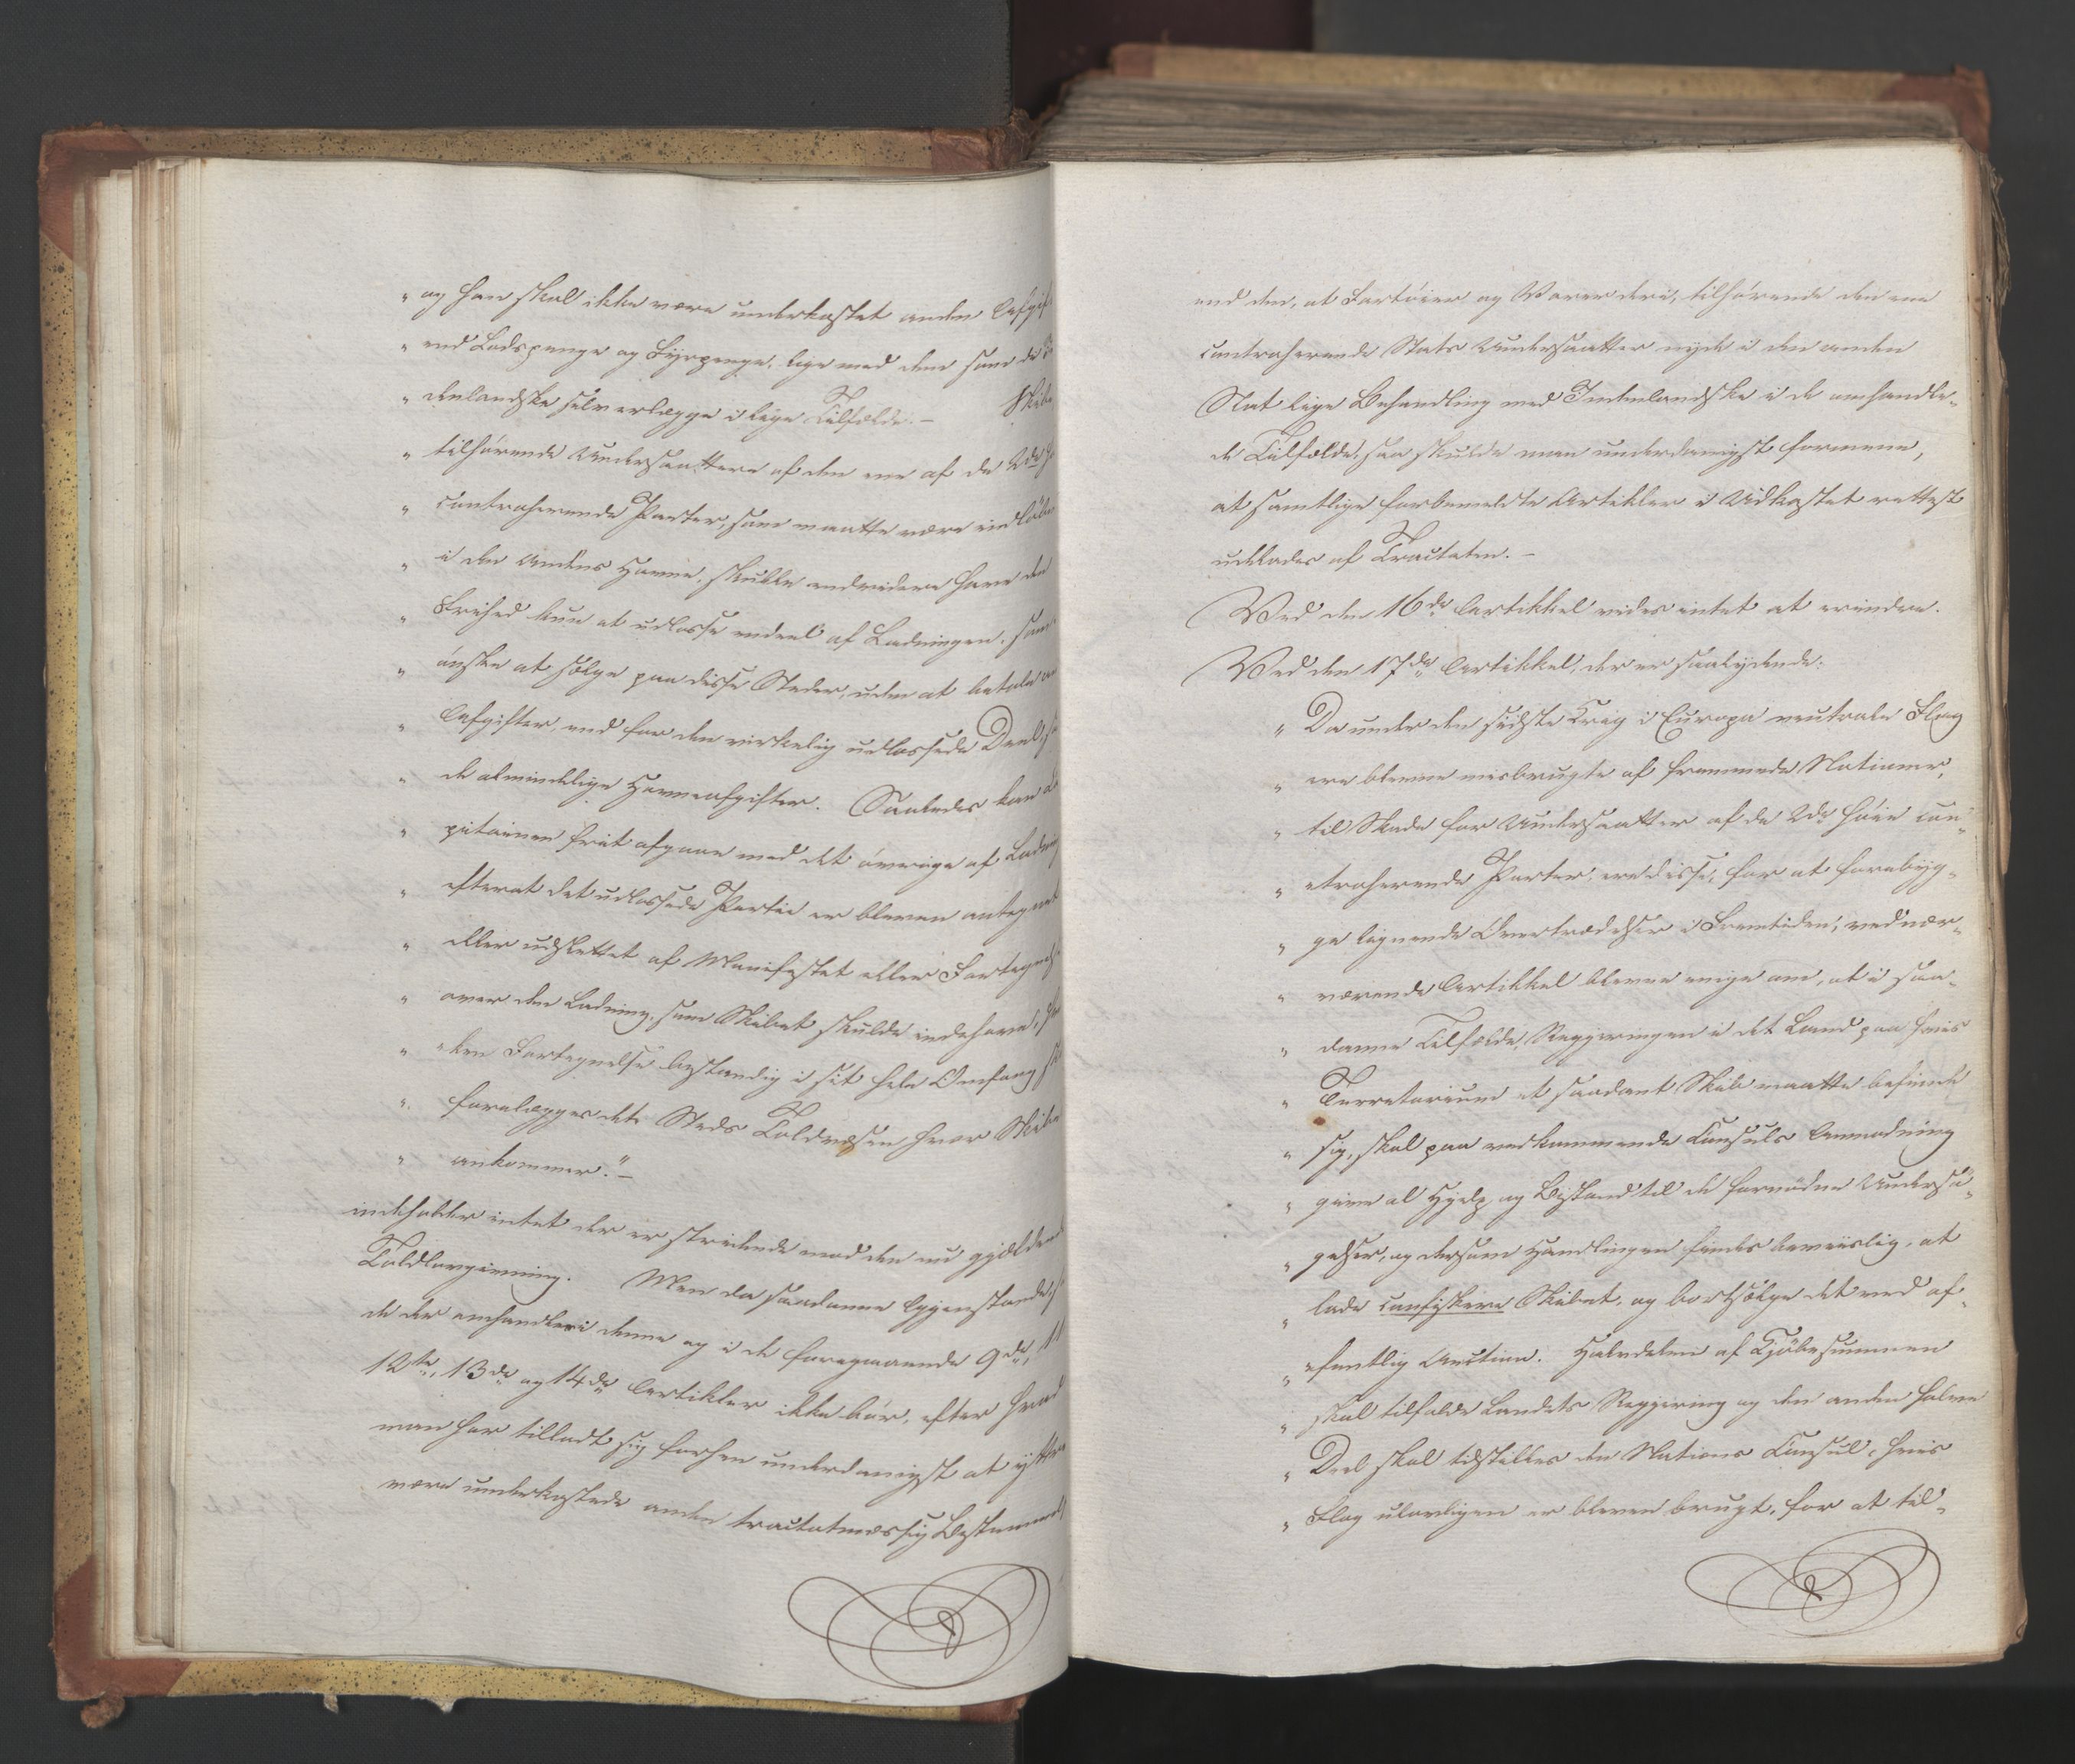 " og han skal ikke være underkastet anden Afgif
" end Lodspenge og Fyrpenge, lige med dem som de
" denlandske selv erlægge i lige Tilfælde. – Skibe,
" tilhørende Undersaattere af den ene af de 2de
" contraherende Parter, som maatte være indløbne
" i den Andens Havne, skulle endvidere have den
" Frihed kun at udlosse endeel af Ladningen, som
" ønske at sælge paa disse Steder, uden at betale
" Afgifter, end for den virkelig udlossede Deel,
" de almindelige Havneafgifter. Saaledes kan
" pitainen frit afgaae med det øvrige af Ladning
" efterat det udlossede Partie er bleven antegnet
" eller udslettet af Manifestet eller Fortegnelse
" over den Ladning, som Skibet skulde indehave,
" ken Fortegnelse bestandig i sit hele Omfang
" forelægges det Steds Toldvæsen hvor Skibet
" ankommer." –
indeholder intet der er stridende mod den nu gjældende
Toldlovgivning. Men da saadanne Gjenstande,
de der omhandles i denne og i de foregaaende 9de, 11
12te, 13de og 14de Artikler ikke bør, efter hvad
man har tilladt sig forhen underdanigst at yttre
være underkastede anden tractatmæssig Bestemmelse
end den, at Fartøier og Varer deri, tilhørende den ene
contraherende Stats Undersaatter nyde i den anden
Stat lige Behandling med Indenlandske i de omhandle-
de Tilfælde, saa skulde man underdanigst formene,
at samtlige forbemeldte Artikler i Udkastet rettest
udelades af Tractaten. –
Ved den 16de Artikkel vides intet at erindre.
Ved den 17de Artikkel, der er saalydende:
" Da under den sidste Krig i Europa neutrale Flag
" ere blevne misbrugte af fremmede Nationer,
" til Skade for Undersaatter af de 2de høie con-
" traherende Parter, ere disse, for at forebyg-
" ge lignende Overtrædelser i Fremtiden, ved nær-
" værende Artikkel blevne enige om, at i saa-
" danne Tilfælde, Regjeringen i det Land paa hvis
" Territorium et saadant Skib maatte befinde
" sig, skal paa vedkommende Consuls Anmodning
" give al Hjelp og Bistand til de fornødne Undersø-
" gelser, og dersom Handlingen findes beviislig, at
" lade confiskere Skibet, og bortsælge det ved of-
" fentlig Auction. Halvdelen af Kjøbesummen
" skal tilfalde Landets Regjering og den anden halve
" Deel skal tilstilles den Nations Consul, hvis
" Flag ulovligen er bleven brugt, for at til-